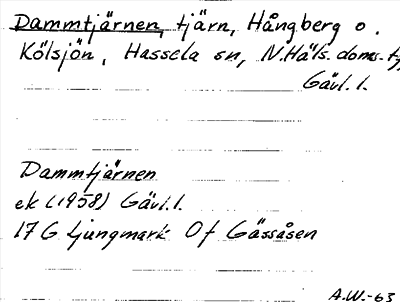 Dammtjärnen, tjärn, Hångberg o.
Kölsjön, Hassela sn, N.Häls. doms.-
Gävl. l.
Dammtjärnen
ek (1958) Gävl. l.
17 G Ljungmark Of Gässåsen
A.W.-63